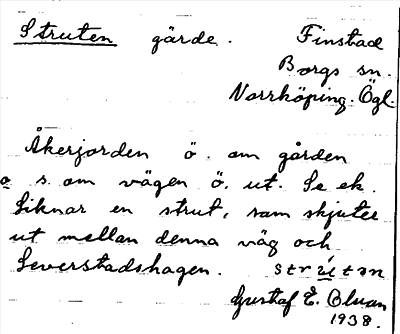 Struten gärde. Finstad
Borgs sn.
Norrköping. Ögl.
Åkerjorden ö. om gården
o s. om vägen ö. ut. Se ek.
Liknar en strut, som skjuter
ut mellan denna väg och
Leverstadshagen. strútən
Gustaf E. Olsson
1938.